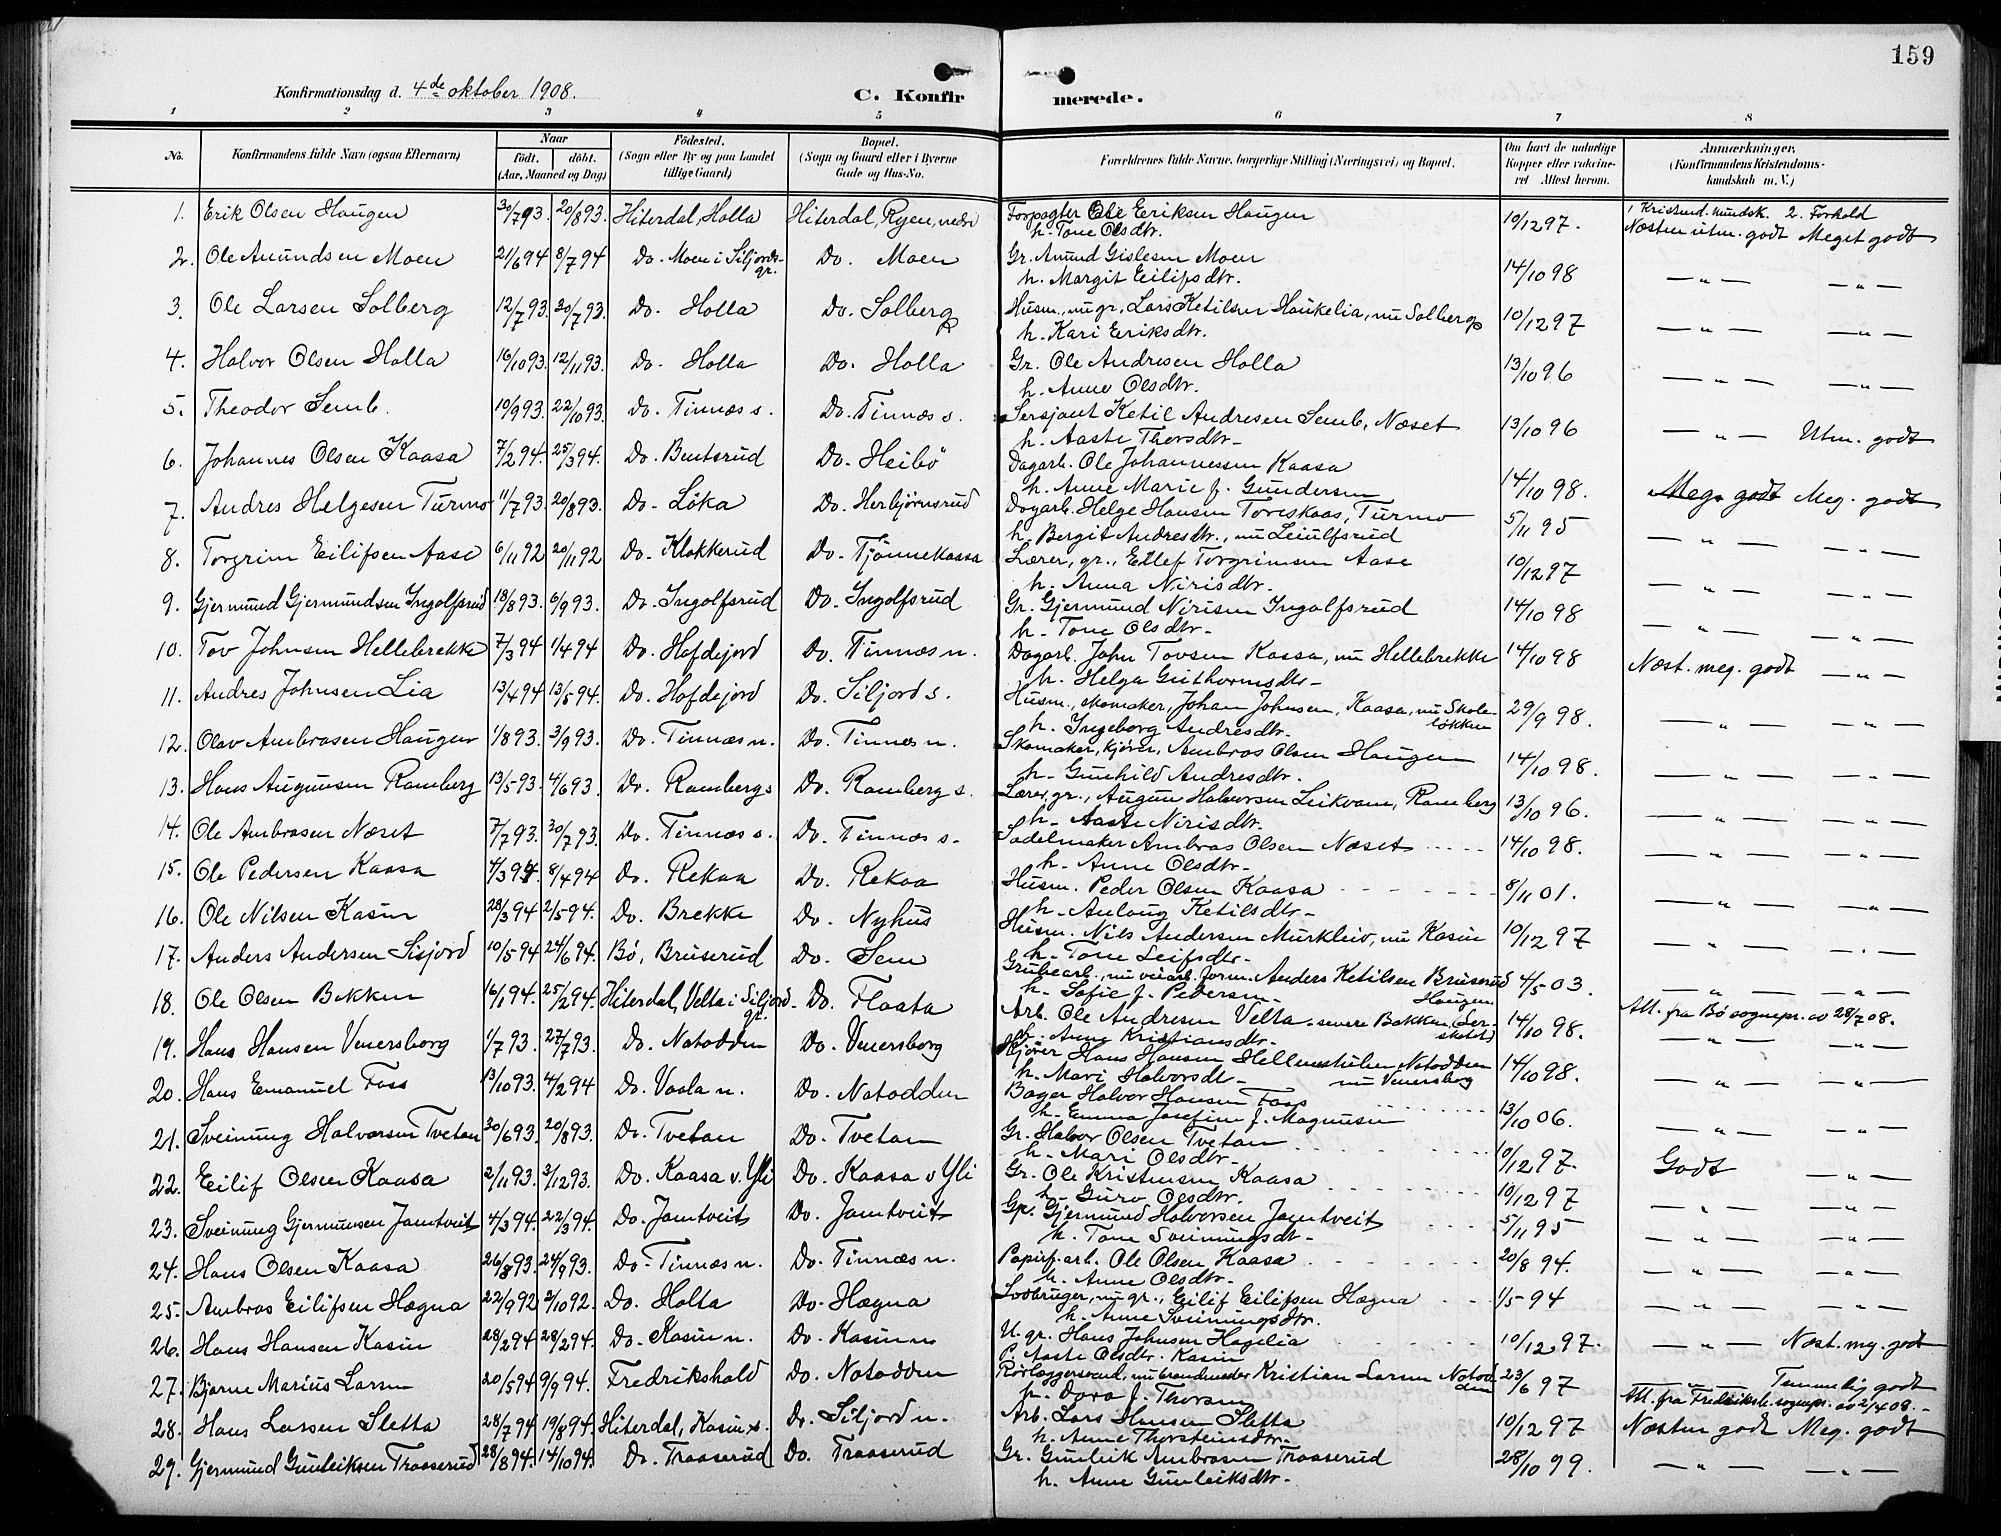 159
Konfirmationsdag d. 4de oktober 1908.
C. Konfirmerede.
1 2 3 4 5 6 7 8
No. Konfirmandens fulde Navn (ogsaa Efternavn) Naar født. døbt. (Aar, Maaned og Dag) Födested. (Sogn eller By og paa Landet tillige Gaard) Bopæl. (Sogn og Gaard eller i Byerne Gade og Hus-No. Forældrenes fulde Navne, borgerlige Stilling (Næringsvei) og Bopæl. Om havt de naturlige Kopper eller vaccineret Attest herom. Anmærkninger. (Konfirmandens Kristendomskundskab m. V.)
1. Erik Olsen Haugen 30/7 93. 20/8 93. Hiterdal, Holla Hiterdal, Ryen, nedre Forpagter Ole Eriksen Haugen 10/12 97. 1 Kristend. kundsk. 2. Forhold
h. Tone Olsdtr. Næsten utm. godt Meget godt
2. Ole Amundsen Moen 21/6 94 8/7 94 Do. Moen i Siljords-gr. Do. Moen Gr. Amund Gislesen Moen 14/10 98 — " — — " —
h. Margit Eilifsdtr.
3. Ole Larsen Solberg 12/7 93. 30/7 93. Do. Holla Do. Solberg Husm., nu gr., Lars Ketilsen Haukelia, nu Solberg 10/12 97 — " — — " —
h. Kari Eriksdtr.
4. Halvor Olsen Holla 16/10 93. 12/11 93. Do. Holla Do. Holla Gr. Ole Andresen Holla 13/10 96 — " — — " —
h. Anne Olsdtr.
5. Theodor Semb. 10/9 93. 22/10 93. Do. Tinnæs s. Do. Tinnæs s. Sersjant Ketil Andresen Semb, Næset 13/10 96 — " — Utm. godt
h. Aaste Thorsdtr.
6. Johannes Olsen Kaasa 7/2 94. 25/3 94. Do. Bentsrud Do. Heibö Dagarb. Ole Johannessen Kaasa 14/10 98. Meg. godt Meg. godt
h. Anne Marie f. Gundersen
7. Andres Helgesen Turmo 11/7 93. 20/8 93. Do. Löka Do. Herbjørnsrud Dagarb. Helge Hansen Toreskaas, Turmo 5/11 95 — " — — " —
h. Bergit Andresdtr., nu Leiulfsrud
8. Torgrim Eilifsen Aase 6/11 92 20/11 92 Do. Klokkerud Do. Tjönnekaasa Lærer, gr., Eilef Torgrimsen Aase 10/12 97 — " — — " —
h. Anna Nirisdtr.
9. Gjermund Gjermundsen Ingolfsrud 18/8 93. 6/9 93. Do. Ingolfsrud Do. Ingolfsrud Gr. Gjermund Nirisen Ingolfsrud 14/10 98 — " — — " —
h. Tone Olsdtr.
10. Tov Johnsen Hellebrekke 7/3 94 1/4 94 Do. Hofdejord Do. Tinnæs n. Dagarb. John Tovsen Kaasa, nu Hellebrekke 14/10 98 Næst. meg. godt — " —
h. Helga Guthormsdtr.
11. Andres Johnsen Lia 13/4 94 13/5 94. Do. Hofdejord Do. Siljord s. Husm., skomaker, Johan Johnsen, Kaasa, nu Skoleløkken 29/9 98. — " — — " —
h. Ingeborg Andresdtr.
12. Olav Ambrosen Haugen 1/8 93. 3/9 93. Do. Tinnæs n. Do. Tinnes n. Skomaker, kjører, Ambros Olsen Haugen 14/10 98. — " — — " —
h. Gunhild Andresdtr.
13. Hans Augunsen Ramberg 13/5 93. 4/6 93. Do. Ramberg s Do. Ramberg s. Lærer, gr., Augun Halvorsen Leikvam, Ramberg 13/10 96. — " — — " —
h. Aaste Nirisdtr.
14. Ole Ambrosen Næset 7/7 93. 30/7 93. Do. Tinnæs s. Do. Tinnæs s. Sadelmaker Ambros Olsen Næset 14/10 98. — " — — " —
h. Anne Olsdtr.
15. Ole Pedersen Kaasa 4/3 94. 8/4 94 Do. Rekaa Do. Rekaa Husm. Peder Olsen Kaasa 8/11 01. — " — — " —
h. Anlaug Ketilsdtr.
16. Ole Nilsen Kasin 28/3 94 2/5 94. Do. Brekke Do. Nyhus Husm. Nils Andersen Murkleiv, nu Kasin 10/12 97 — " — — " —
h. Tone Leifsdtr.
17. Anders Andersen Sisjord 10/5 94 24/6 94. Bø, Bruserud Do. Sem Grubearb., nu veiarb. form. Anders Ketilsen Bruserud Haugen. 4/5 03. — " — — " —
h. Sofie f. Pedersen Att. fra Bø sognepr. av 28/7 08.
18. Ole Olsen Bakken 16/1 94. 25/2 94. Hiterdal, Velta i Siljord-gr. Do. Flaata Arb. Ole Andresen Velta, senere Bakken 14/10 98. — " — — " —
h. Anne Kristiansdtr.
19. Hans Hansen Venersborg 1/7 93. 27/7 93. Do. Notodden Do. Venersborg Kjører Hans Hansen Hellemstulen Notodden nu Venersborg 14/10 98. — " — — " —
h. Mari Halvorsdt.
20. Hans Emanuel Foss 13/10 93. 4/2 94 Do. Vaala n. Do. Notodden Bager Halvor Hansen Foss 13/10 06. — " — — " —
h. Emma Josefine f. Magnusen
21. Sveinung Halvorsen Tvetan 30/6 93. 20/8 93. Do. Tvetan Do. Tvetan Gr. Halvor Olsen Tvetan 10/12 97. Godt — " —
h. Mari Olsdtr.
22. Eilif Olsen Kaasa 2/11 93. 3/12 93. Do. Kaasa v. Yli Do. Kaasa v Yli Gr. Ole Kristensen Kaasa 10/12 97 — " — — " —
h. Guro Olsdtr.
23. Sveinung Gjermunsen Jamtveit 4/3 94. 22/3 94. Do. Jamtveit Do. Jamtveit Gr. Gjermund Halvorsen Jamtveit 5/11 95 — " — — " —
h. Tone Sveinungsdt.
24. Hans Olsen Kaasa 26/8 93. 24/9 93. Do. Tinnæs n. Do. Tinnæs n. Papirf. arb. Ole Olsen Kaasa 20/8 94. — " — — " —
h. Anne Olsdtr.
25. Ambros Eilifsen Hægna 22/9 92 2/10 92. Do. Holta Do. Hægna Lodbruger, nu gr., Eilif Eilifsen Hægna 1/5 94 — " — — " —
h. Anne Sveinungsdtr.
26. Hans Hansen Kasin 28/2 94 28/2 94. Do. Kasin n. Do. Kasin n U. gr. Hans Johnsen Hagelia 10/12 97. — " — Næst. mg. godt
P. Aaste Olsdtr. Kasin
27. Bjarne Marius Larsen 20/5 94 9/9 94. Fredrikshald Do. Notodden Rörlæggersvend, nu brandmester Kristian Larsen Notodden 23/6 97 — " — Temmelig godt
h. Dora f. Thorsen Att. fra Fredriksh. sognepr. av 2/4 08.
28. Hans Larsen Sletta 28/7 94 19/8 94 Hiterdal, Kasin s. Do. Siljord n. Arb. Lars Hansen Sletta 10/12 97 Næsten godt Meg. godt
h. Anne Thorsteinsdtr.
29. Gjermund Gunleiksen Traaserud 28/8 94. 14/10 94. Do. Traaserud Do. Traaserud Gr. Gunleik Ambrosen Traaserud 28/10 99. — " — — " —
h. Anne Gunleiksdtr.